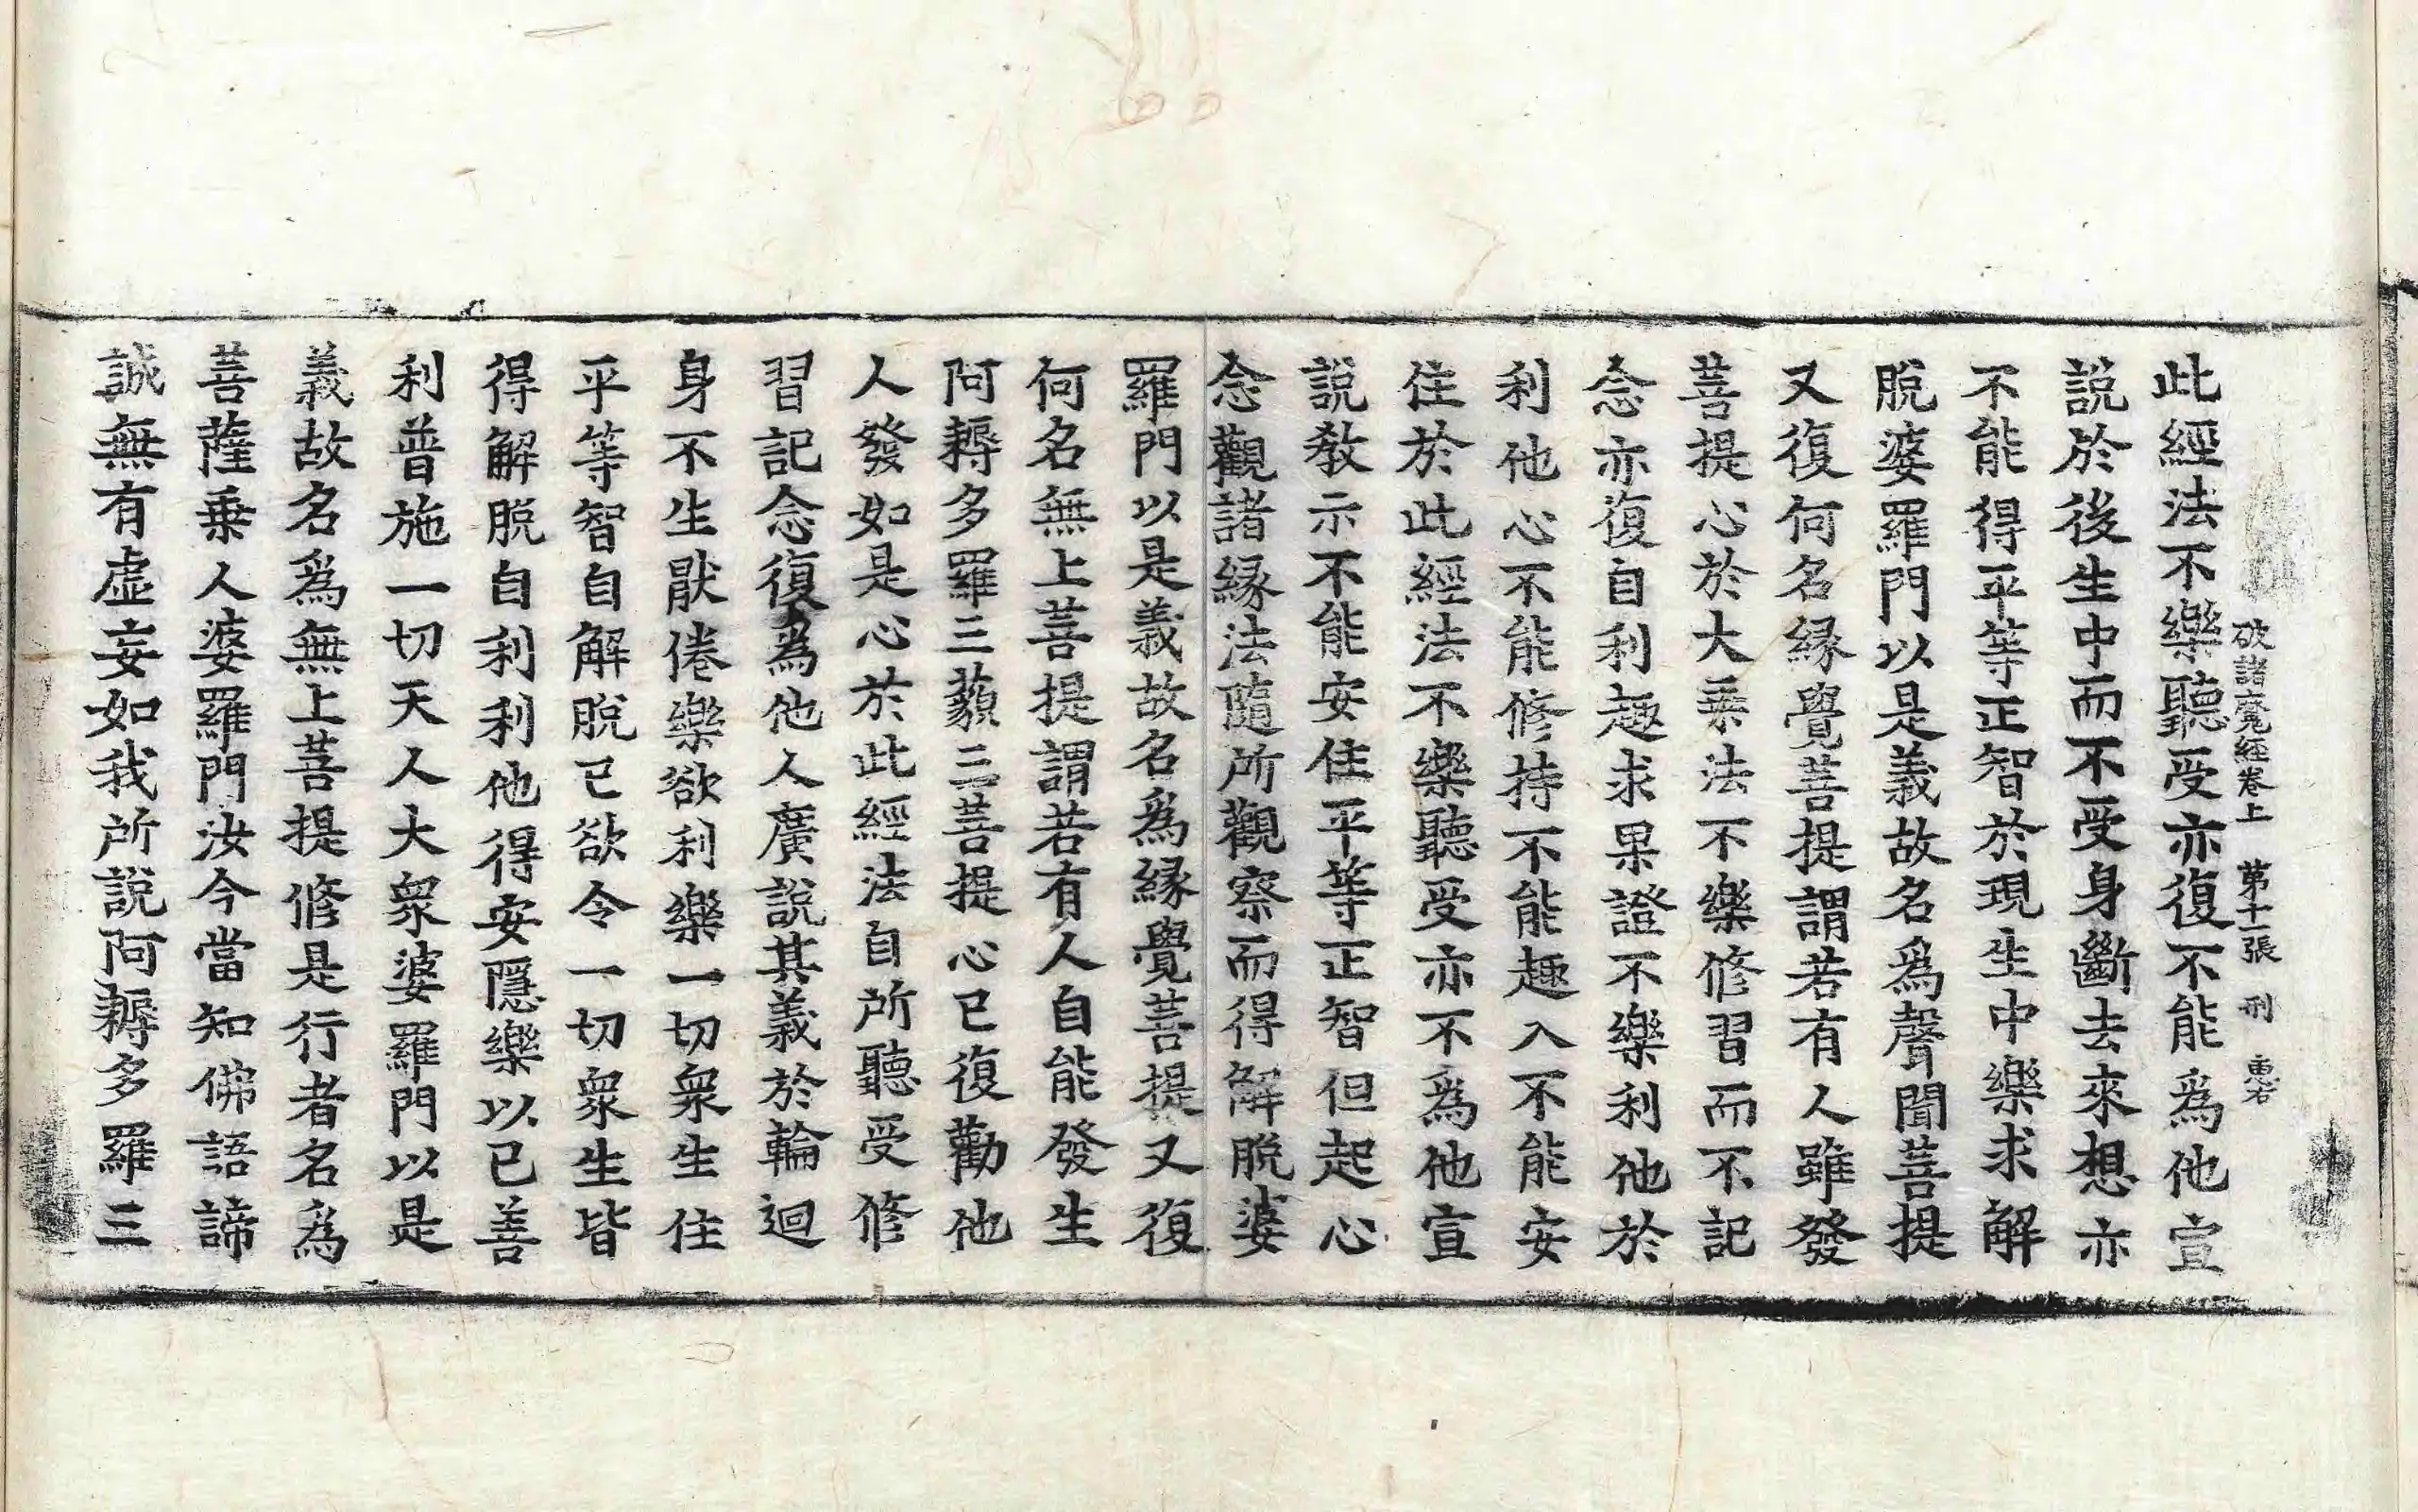 破諸魔經卷上 第十一張 刑
此經法不樂聽受亦復不能爲他宣
說於後生中而不受身斷去來想亦
不能得平等正智於現生中樂求解
脫婆羅門以是義故名爲聲聞菩提
又復何名緣覺菩提謂若有人雖發
菩提心於大乗法不樂修習而不記
念亦復自利趣求果證不樂利他於
利他心不能修持不能趣入不能安
住於此經法不樂聽受亦不爲他宣
說教示不能安住平等正智但起心
念觀諸緣法隨所觀察而得解脫婆
羅門以是義故名爲緣覺菩提又復
何名無上菩提謂若有人自能發生
阿耨多羅三藐三菩提心已復勸他
人發如是心於此經法自所聽受修
習記念復為他人廣說其義於輪迴
身不生猒倦樂欲利樂一切衆生住
平等智自解脫已欲令一切衆生皆
得解脫自利利他得安隱樂以已善
利普施一切天人大衆婆羅門以是
義故名爲無上菩提修是行者名為
菩薩乗人婆羅門汝今當知佛語諦
誠無有虛妄如我所說阿耨多羅三